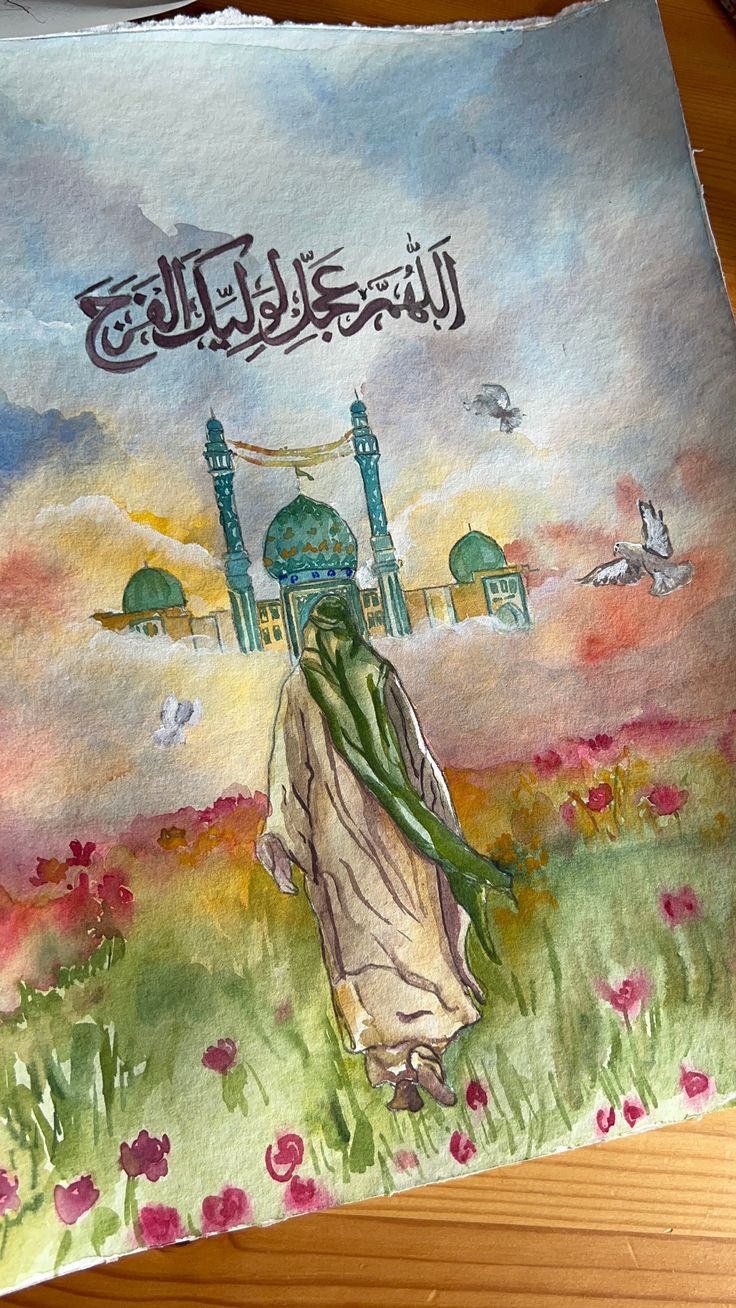 اَللّٰهُمَّ عَجِّل لِوَلیِّکَ الفَرَجَ